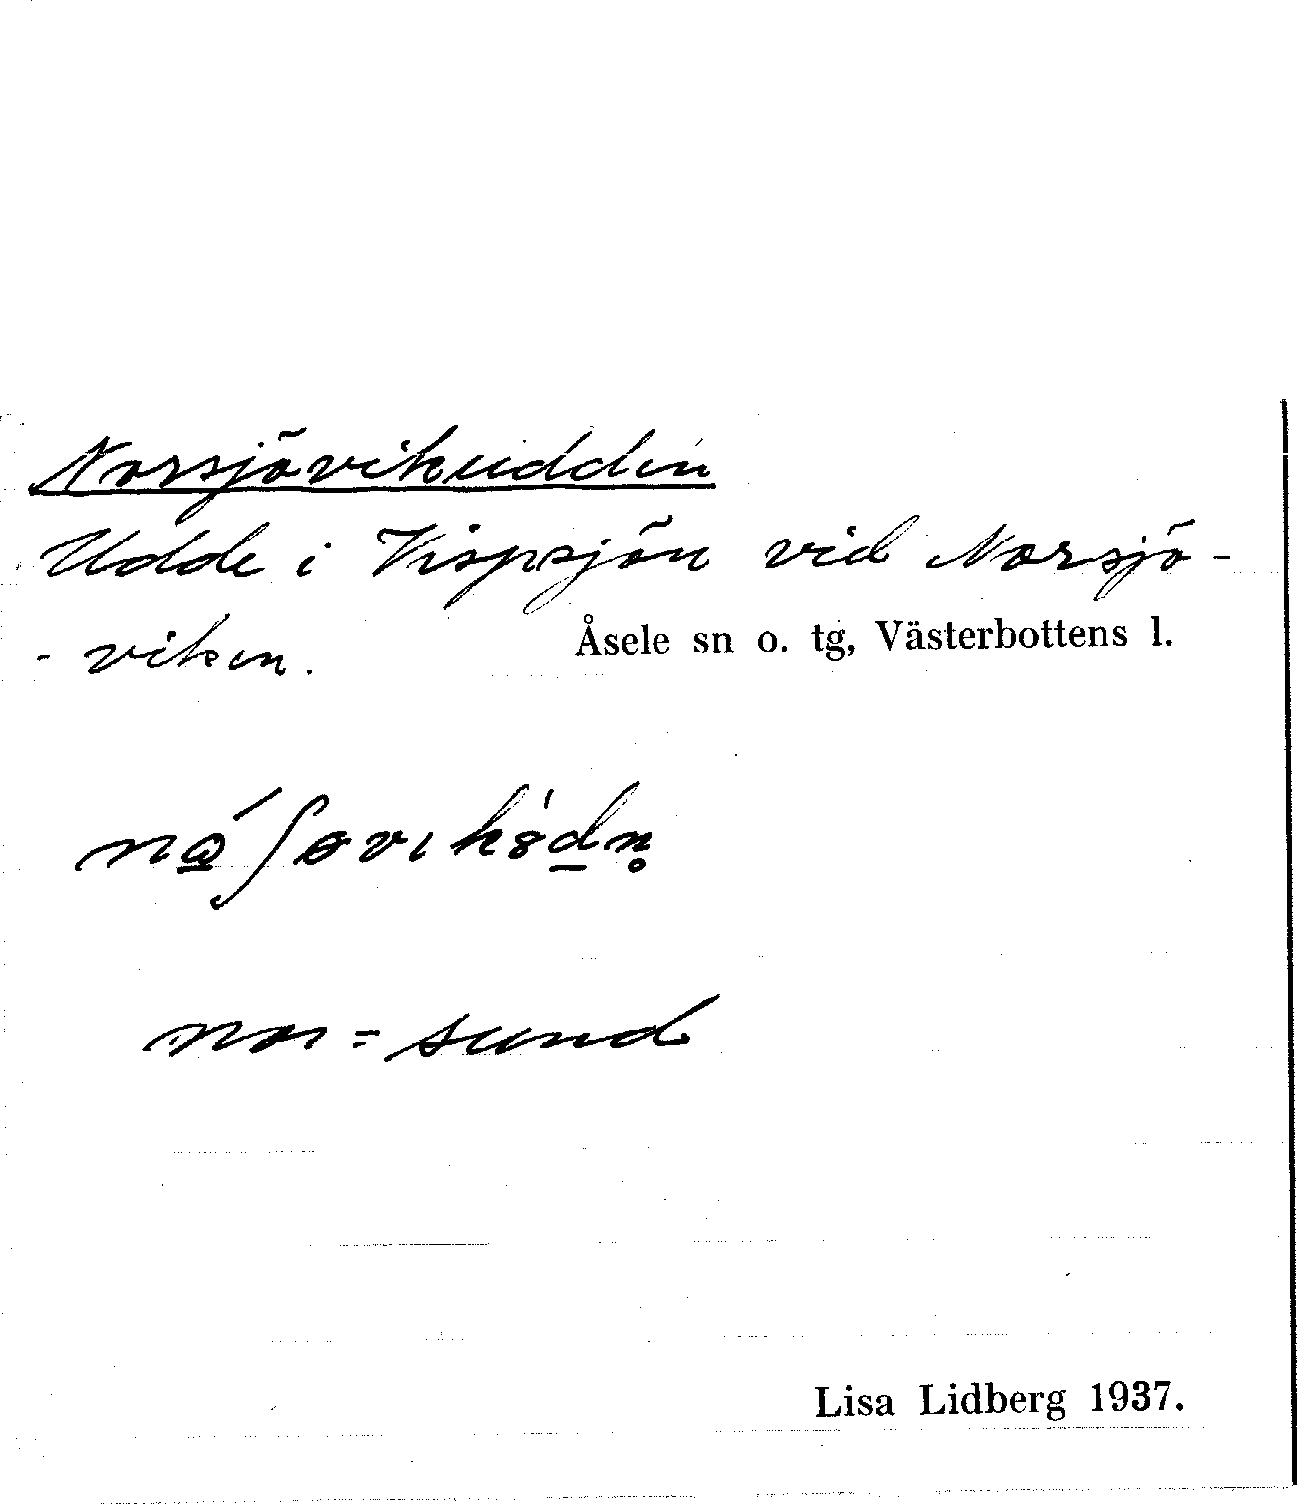 Norsjövikudden
Udde i Vispsjön vid Norsjö-
- viken.
Åsele sn o. tg, Västerbottens l.
nor = sund
Lisa Lidberg 1937.